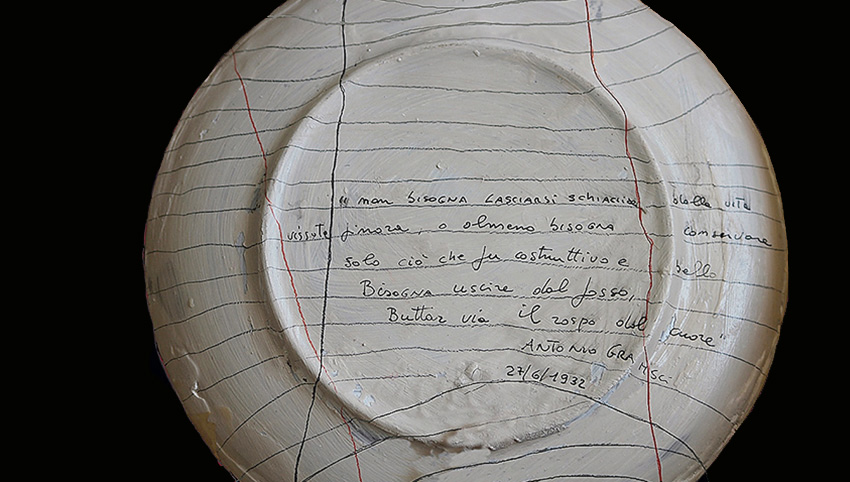 " non BISOGNA LASCIARSI SCHIACCIARE dalla vita
vissuta finora, o almeno bisogna conservare
solo ciò che fu costruttivo e bello
BISOGNA uscire dal fosso,
Buttar via il rospo dal cuore"
ANTONIO GRAMSCI
27/6/1932